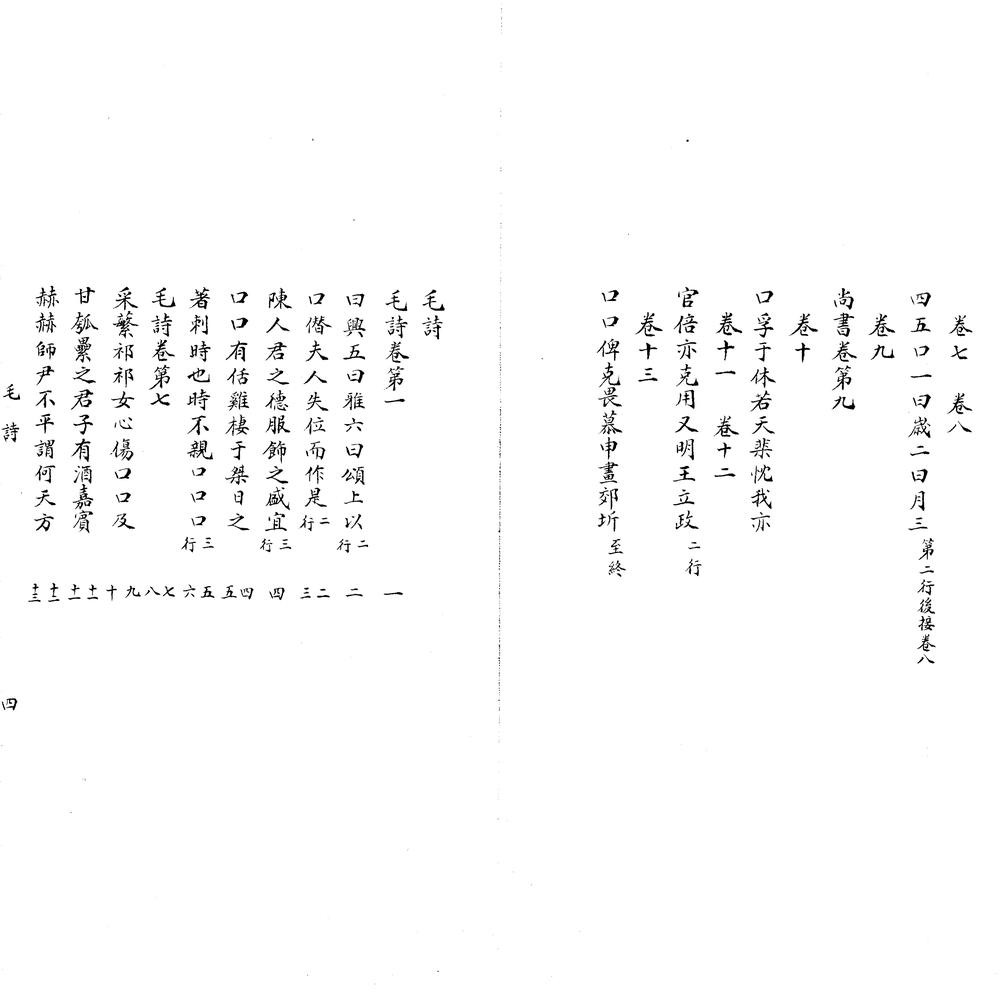 卷七　卷八
四五口一曰歲二曰月三第二行後接卷八
卷九
尚書卷第九
卷十
口孚于休若天棐忱我亦
卷十一　卷十二
官倍亦克用乂明王立政二行
卷十三
口口俾克畏慕申畫郊圻至終
毛詩
毛詩卷第一　一
曰興五曰雅六曰頌上以二行　二
口僭夫人失位而作是二行　二三
陳人君之德服飾之盛宜三行　四
口口有佸雞棲于桀日之　四五
著刺時也時不親口口口三行　五六
毛詩卷第七　七八
采蘩祁祁女心傷口口及　九十
甘瓠纍之君子有酒嘉賓　十一十二
赫赫師尹不平謂何天方　十二十三
毛詩
四